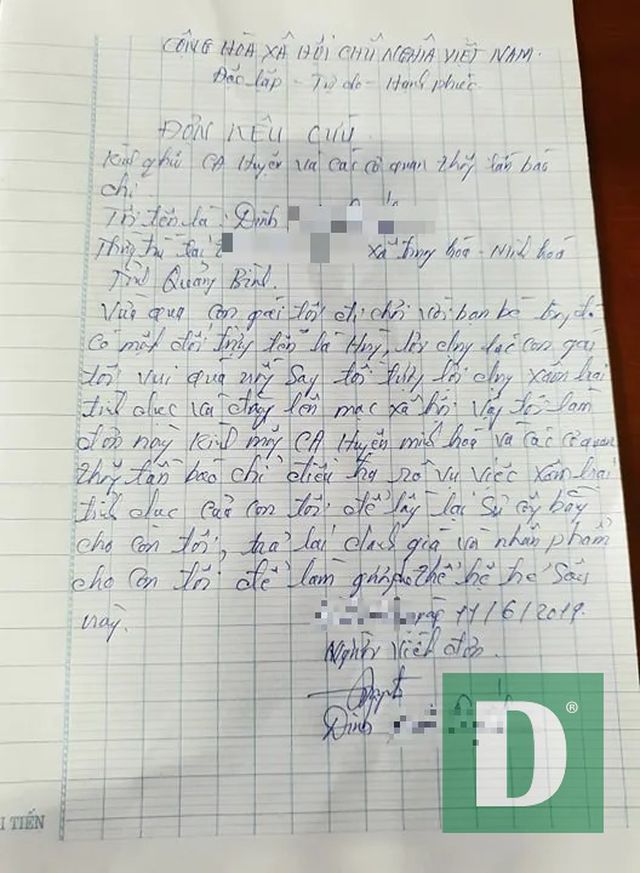 CỘNG HÒA XÃ HỘI CHỦ NGHĨA VIỆT NAM.
Độc lập - Tự do - Hạnh phúc.
ĐƠN KÊU CỨU
Kính gửi CA Huyện và các cơ quan thông tấn báo
chí
Tôi tên là: Đinh
Thường trú tại: xã trung hoá - Minh hoá
Tỉnh Quảng Bình.
Vừa qua con gái tôi đi chơi với bạn bè
có một đối tượng tên là Huy, lợi dụng lúc con gái
tôi vui quá say tới xâm hại
tình dục và đăng lên mạc xã hội vậy tôi làm
đơn này Kính mong CA Huyện minh hoá và các cơ quan
thông tấn báo chí điều tra rõ vụ việc xâm hại
tình dục của con tôi để lấy lại sự công bằng
cho con tôi, trả lại danh giá và nhân phẩm
cho con tôi để làm gương thế hệ trẻ sau
này.
ngày 11/6/2019.
Người viết đơn.
Đinh
D®
TIẾN